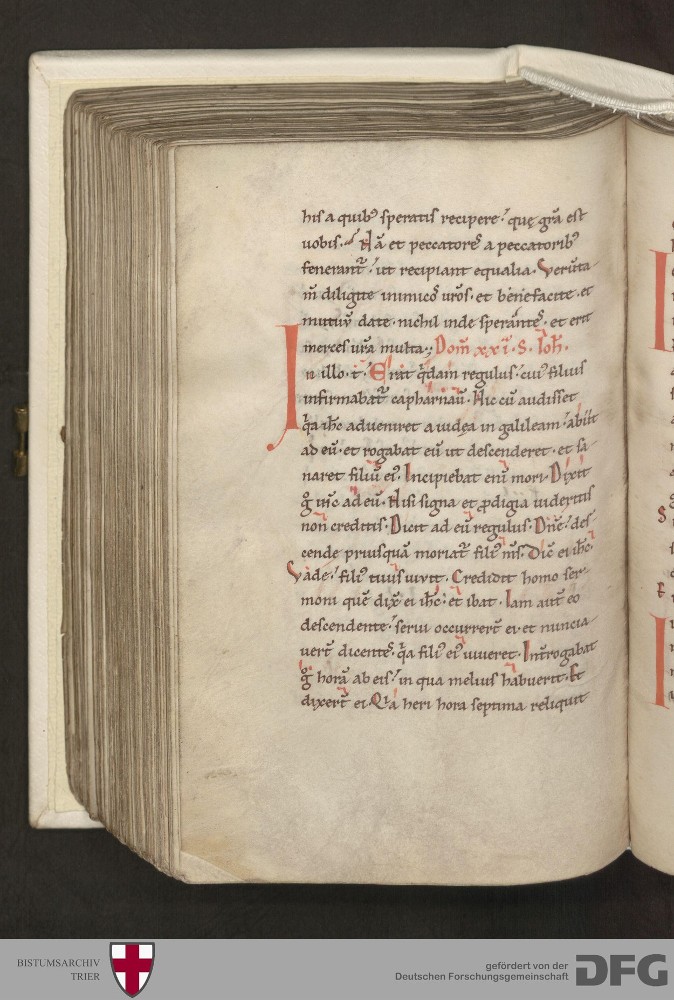 his a quib᷒ speratis recipere. quę gr̄a est
uobis. Nā et peccatores a peccatorib᷒
fenerant᷑. ut recipiant equalia. Verūta
m̄ diligite inimicos ur̄os. et benefacite. et
mutuū date. nichil inde sperantes. et erit
merces ur̄a multa. Dom̄ xxi. S. Ioh̄.
In illo. t. Erat q̄dam regulus. cui᷒ filius
infirmabat᷑ capharnaū. Hic cū audisset
q̄a ih̄c adueniret a iudęa in galileam. abiit
ad eū. et rogabat eū ut descenderet. et sa
naret filiū ei᷒. Incipiebat eni̅ mori. Dixit
g̊ ih̄c ad eū. Nisi signa et ꝓdigia uideritis
non creditis. Dicit ad eū regulus. Dn̄e. des
cende priusquā moriat᷑ fili᷒ m̄s. Dic̄ ei ih̄c.
Vade. fili᷒ tuus uiuit. Credidit homo ser
moni quē dix̄ ei ih̄c. et ibat. Iam aut̄ eo
descendente. serui occurrer̄t ei. et nuncia
uer̄t dicentes. q̄a fili᷒ ei᷒ uiueret. Int̄rogabat
g̊ horā ab eis. in qua melius habuerit. Et
dixer̄t ei. Q̄a heri hora septima reliquit
BISTUMSARCHIV
TRIER
gefördert von der
Deutschen Forschungsgemeinschaft
DFG